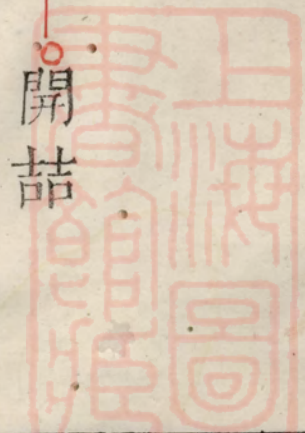 開喆
上海圖
書館藏